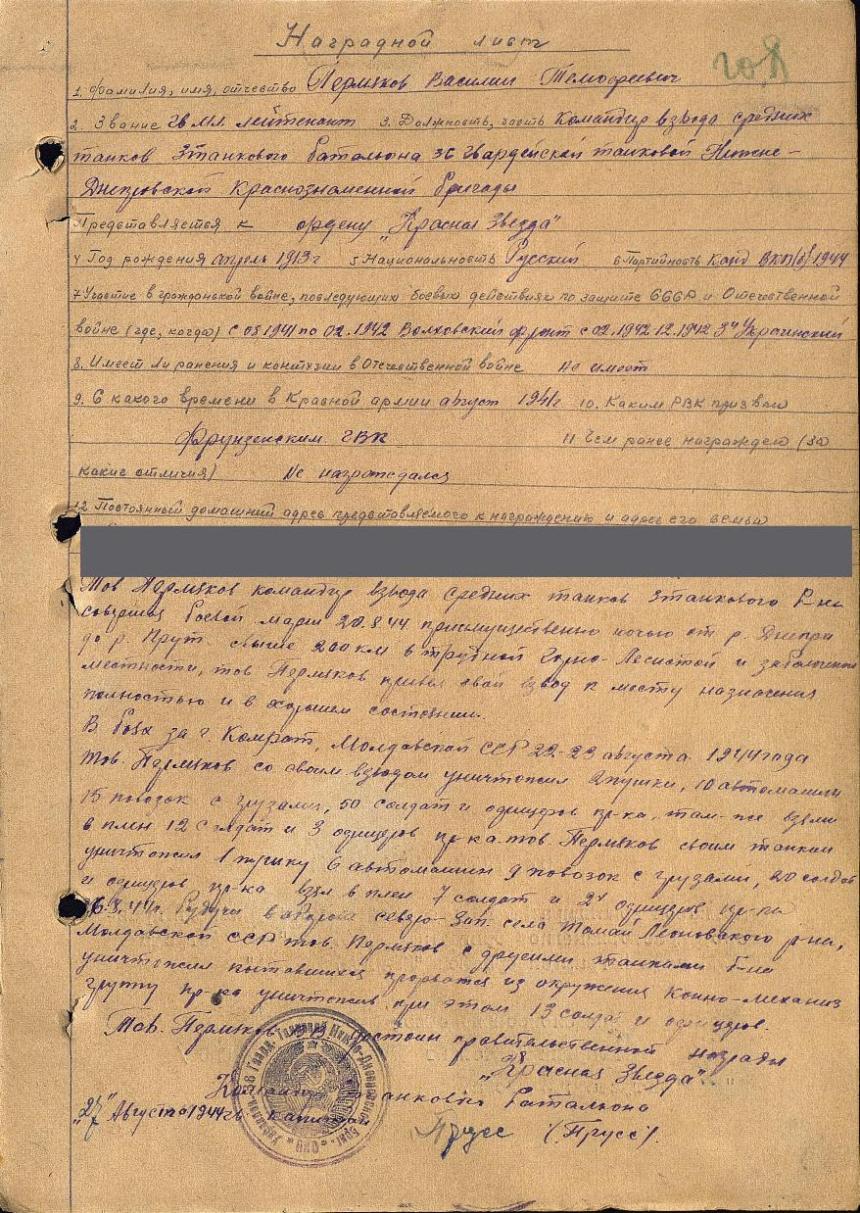 Наградной лист
1. Фамилия, имя, отчество Пермяков Василий Темофеевич
2. Звание гв мл. лейтенант 3. Должность, часть Командир взвода средних
танков 3 танкового батальона 36 гвардейской танковой Нижне-
Днепровской Краснознаменной бригады
Представляется к ордену "Красная Звезда"
4 Год рождения апрель 1913 г 5 Национальность Русский 6 Партийность Канд ВКП(б) 1944
7 Участие в гражданской войне, последующих боевых действиях по защите СССР и Отечественной
войне (где, когда) с 08 1941 по 02. 1942 Волховский фронт с 02.1942 12.1942 3й Украинский
8. Имеет ли ранения и контузии в Отечественной войне Не имеет
9. С какого времени в Красной армии август 1941 г 10. Каким РВК призван
Фрунзенским ГВК 11 Чем ранее награжден (за
какие отличия) Не награждался
12 Постоянный домашний адрес представляемого к награждению и адрес его семьи
Тов Пермяков командир взвода средних танков 3 танкового б-на
совершая боевой марш 20.8.44 преимущественно ночью от р. Днепра
до р. Прут свыше 200 км в трудной горно-лесистой и заболоченой
местности, тов Пермяков привел свой взвод к месту назначения
полностью и в хорошем состоянии.
В боях за г. Комрат, Молдавской ССР 22-23 августа 1944 года
тов. Пермяков со своим взводом уничтожил 2 пушки, 10 автомашин
15 повозок с грузами, 50 солдат и офицеров пр-ка, там-же взяли
в плен 12 солдат и 3 офицеров пр-ка. тов. Пермяков своим танком
уничтожил 1 пушку 6 автомашин 9 повозок с грузами, 20 солдат
и офицеров пр-ка взял в плен 7 солдат и 2х офицеров пр-ка
26.8.44г. Будучи в обороне северо-зап. села Томай Леоновского р-на,
Молдавской ССР тов. Пермяков с другими танками б-на
уничтожил пытавшихся прорватся из окружения Конно-механиз
группу пр-ка уничтожив при этом 13 солдат и офицеров.
Тов. Пермяков достоин правительственной награды
"Красная Звезда"
Командир танкового батальона
"27" Августа 1944 г гв. капитан Прусс (Прусс).